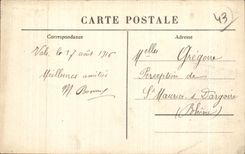 CARTE POSTALE
43
Correspondance
Adresse
Vals le 17 août 1916
Meilleures amitiés
M.
Melles Grégoire
Perception de
St Maurice s/ Dargoire
(Rhône)